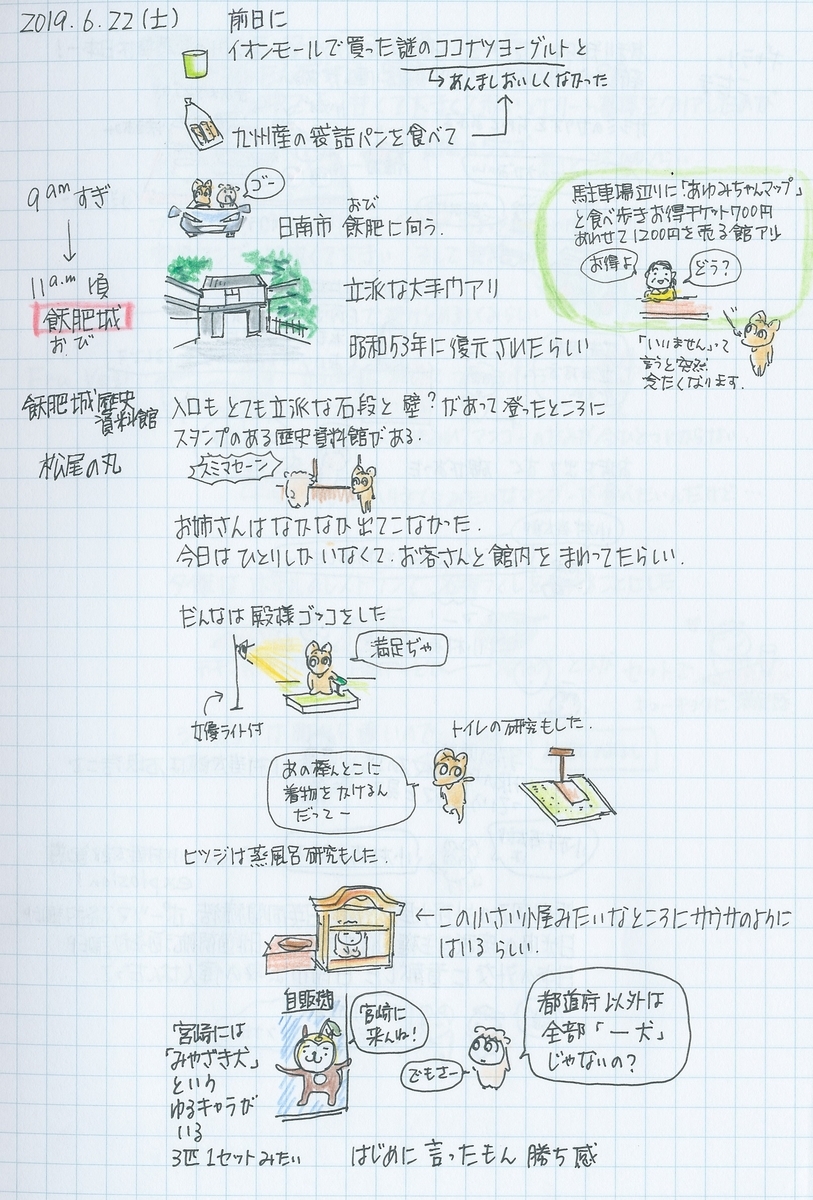 2019.6.22(土)
前日に
イオンモールで買った謎のココナツヨーグルトと
↳あんましおいしくなかった
九州産の袋詰パンを食べて
9amすぎ
ゴー
おび
日南市 飫肥に向う.
11a.m頃
飫肥城
おび
立派な大手門アリ
昭和53年に復元されたらしい
駐車場辺りに「あゆみちゃんマップ」
と食べ歩きお得チケット700円
あわせて1200円を売る館アリ
お得よ
どう?
「いりません」って
言うと突然
冷たくなります.
飫肥城歴史
資料館
松尾の丸
入口も とても立派な石段と 壁?があって 登ったところに
スタンプのある歴史資料館がある.
スミマセーン
お姉さんは なかなか 出てこなかった.
今日は ひとりしか いなくて. お客さんと館内を まわってたらしい.
だんなは 殿様ゴッコをした
満足ぢゃ
女優ライト付
トイレの研究もした.
あの棒んとこに
着物をかけるん
だってー
ヒツジは 蒸風呂研究もした.
←この小さい小屋みたいなところにサウナのように
はいるらしい.
自販機
宮崎に
来んね!
宮崎には
「みやざき犬」
という
ゆるキャラが
いる
3匹1セットみたい
でもさー
都道府以外は
全部「一犬」
じゃないの?
はじめに 言ったもん 勝ち感